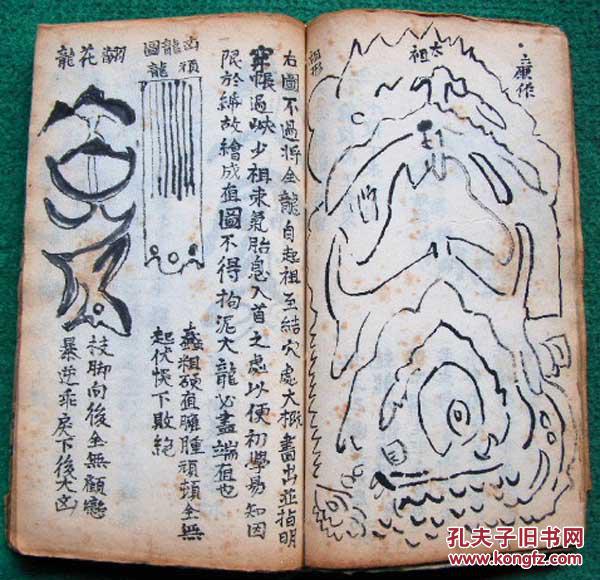 廉作
太祖
右圖不過將全龍自起祖至結穴處大概畫出並指明
穿帳過峽少祖束氣胎息入首之處以便初學易知因
限於紙故繪成直圖不得拘泥大龍必盡端直也
凶龍圖
頑龍
蠢粗硬直臃腫頑頓全無
起伏悞下敗絕
翻花龍
枝脚向後全無顧戀
暴逆乖戾下後大凶
孔夫子旧书网
www.kongfz.com